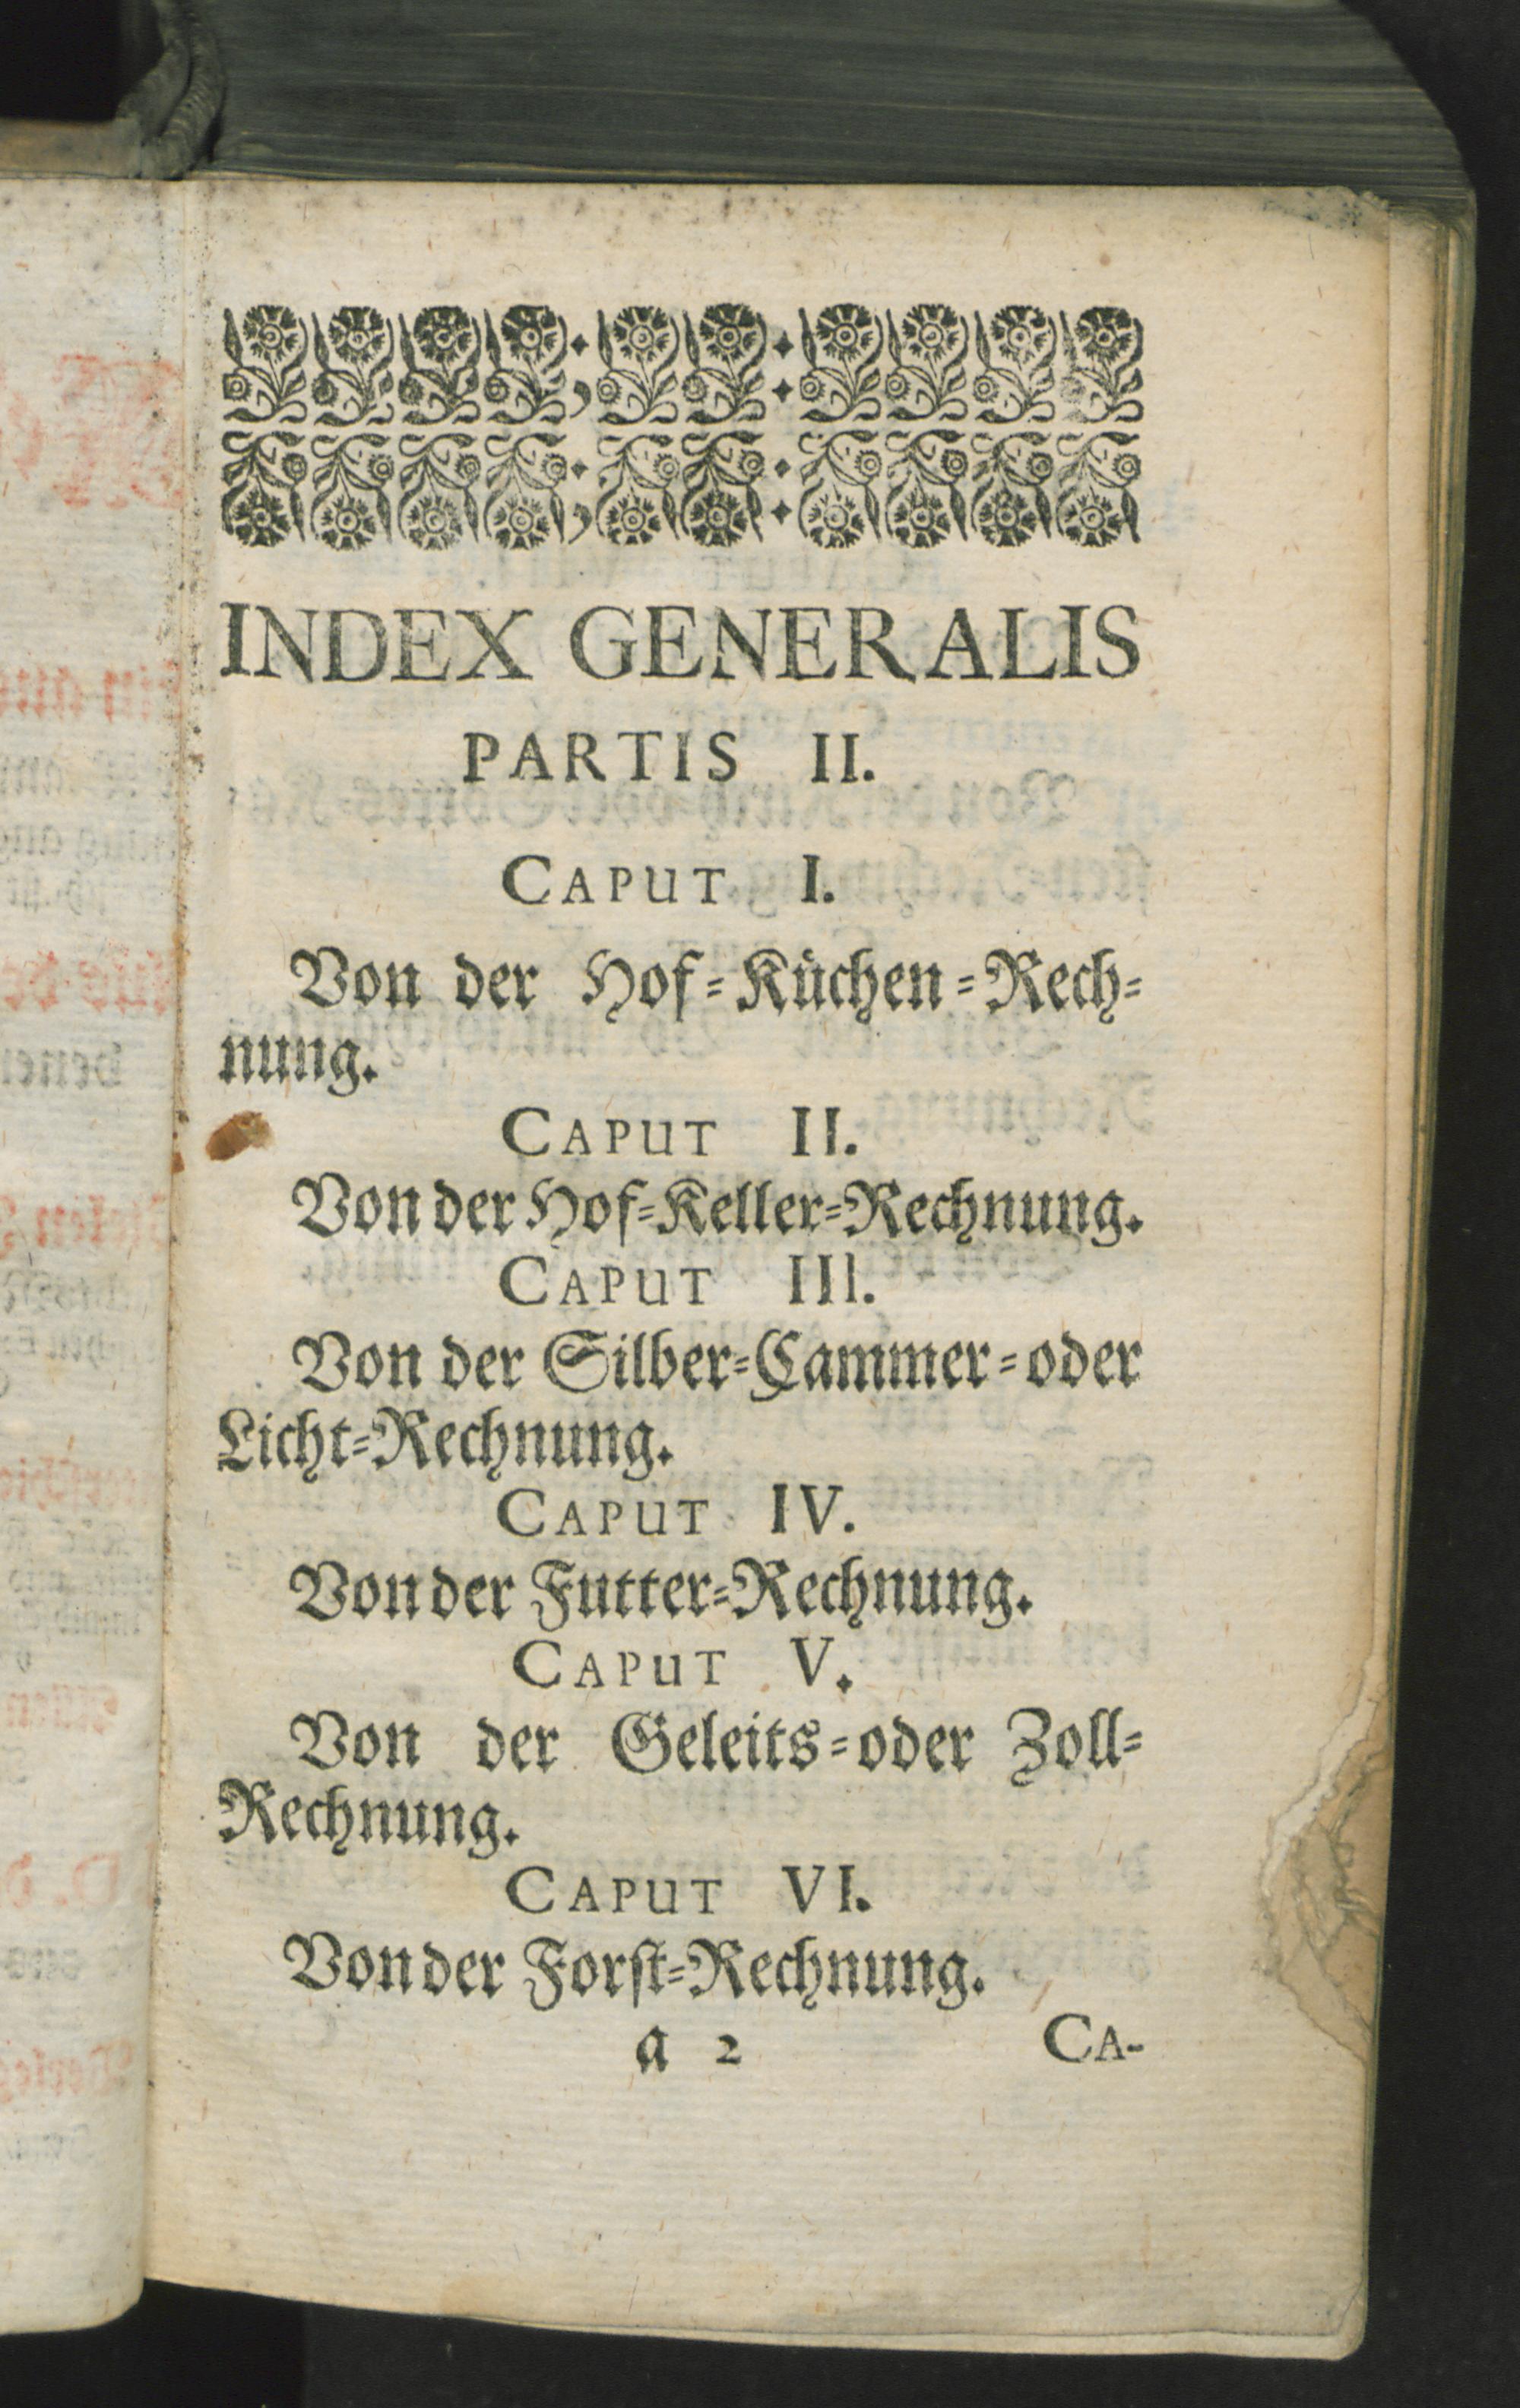 INDEX GENERALIS
PARTIS II.
CAPUT I.
Von der Hof-Küchen-Rech-
nung.
CAPUT II.
Von der Hof-Keller-Rechnung.
CAPUT III.
Von der Silber-Cammer-oder
Licht-Rechnung.
CAPUT IV.
Von der Futter-Rechnung.
CAPUT V.
Von der Geleits-oder Zoll-
Rechnung.
CAPUT VI.
Von der Forst-Rechnung.
a 2 CA-